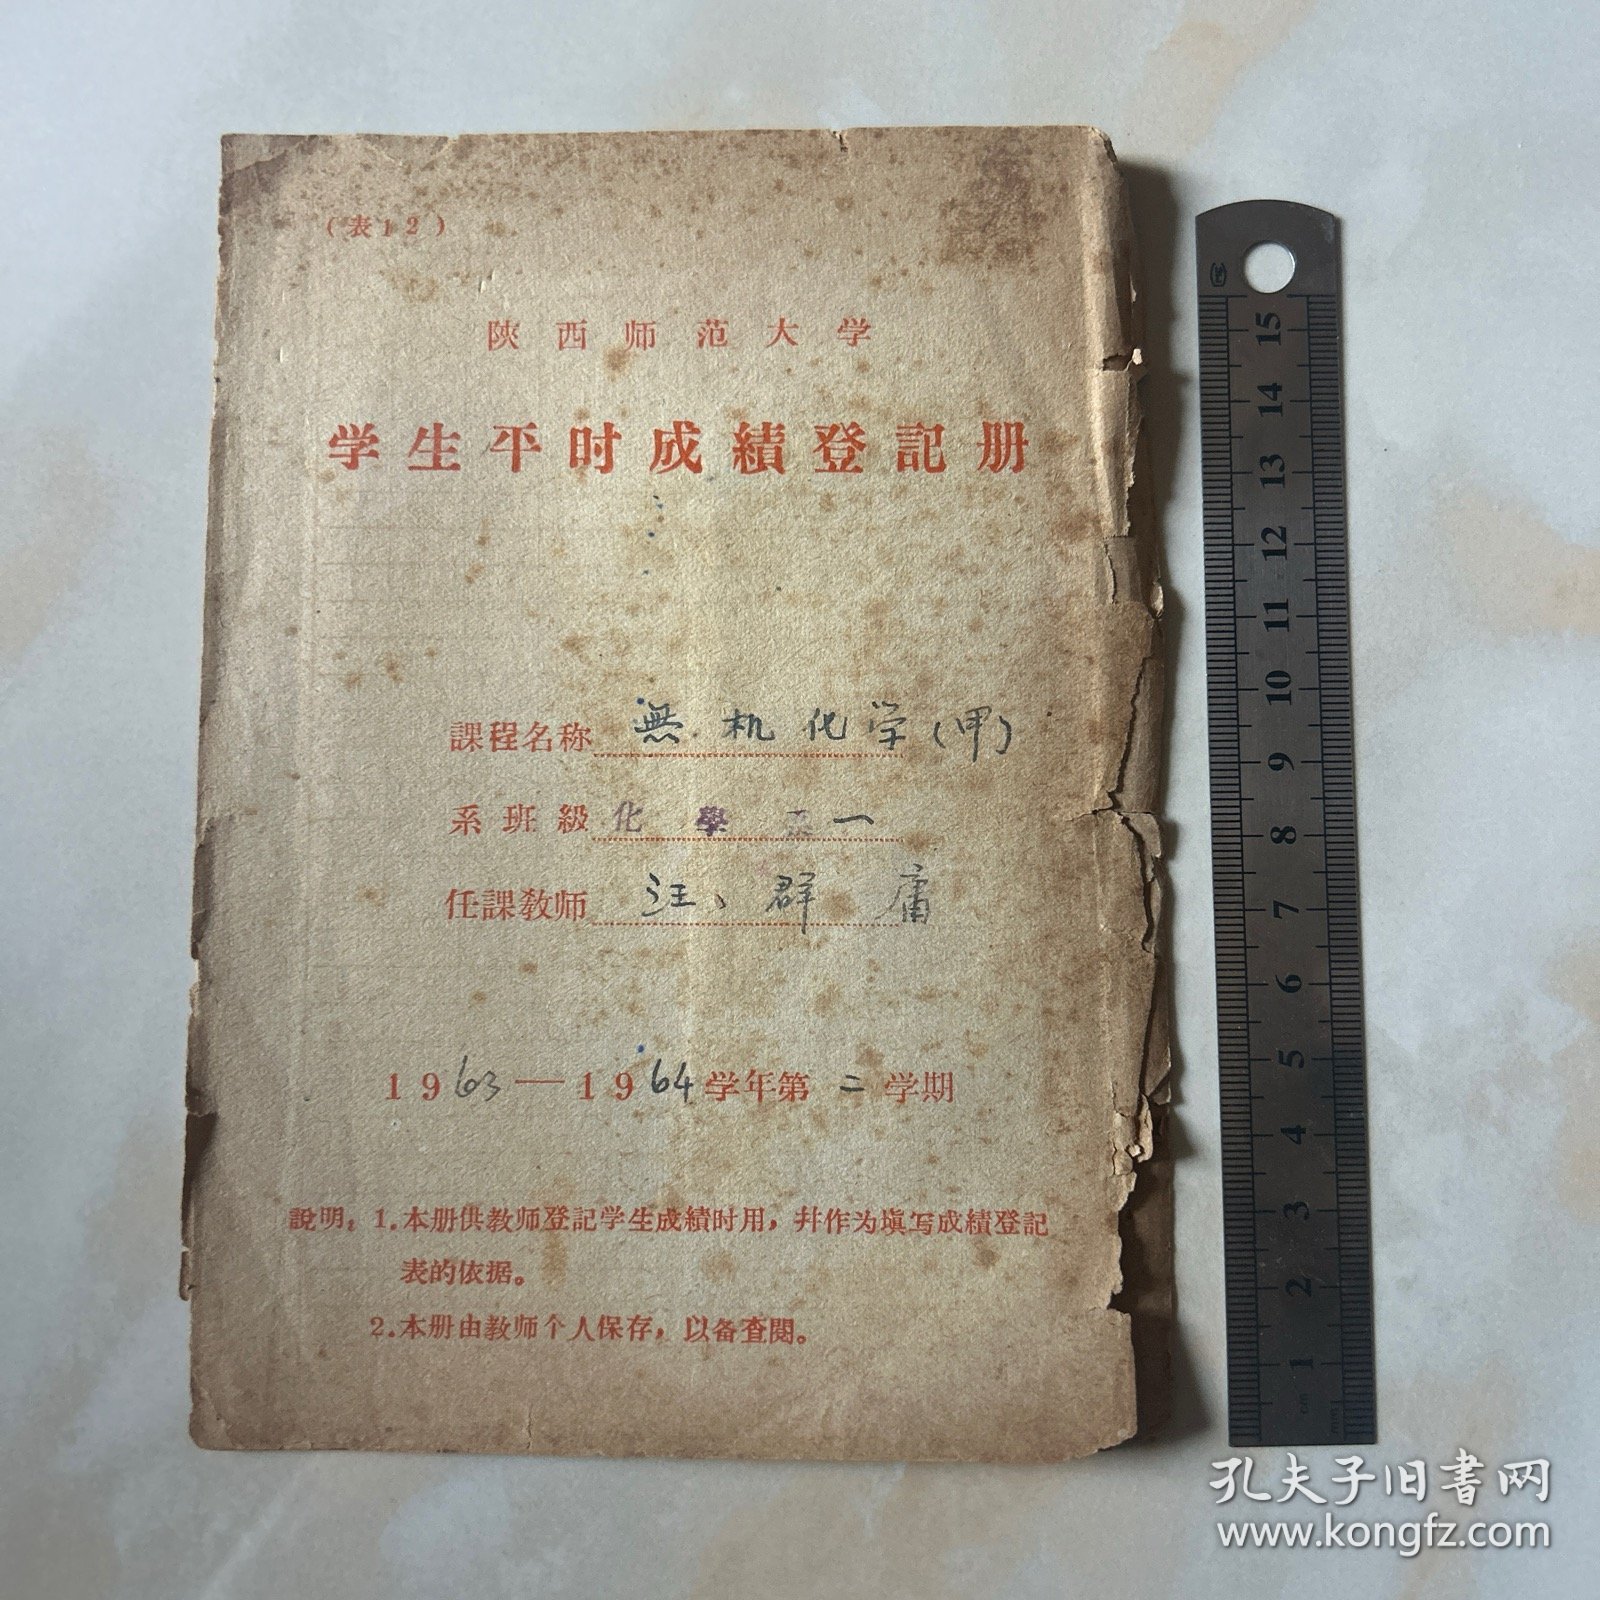 （表12）
陝西师范大学
学生平时成績登記册
課程名称 無机化学(甲)
系班級 化學系一
任課教师 汪、群庸
1963—1964学年第二学期
說明：1.本册供教师登記学生成績时用，幷作为塡写成績登記
表的依据。
2.本册由教师个人保存，以备查閱。
15
14
13
12
11
10
9
8
7
6
5
4
3
2
1
cm
mm
孔夫子旧書网
www.kongfz.com